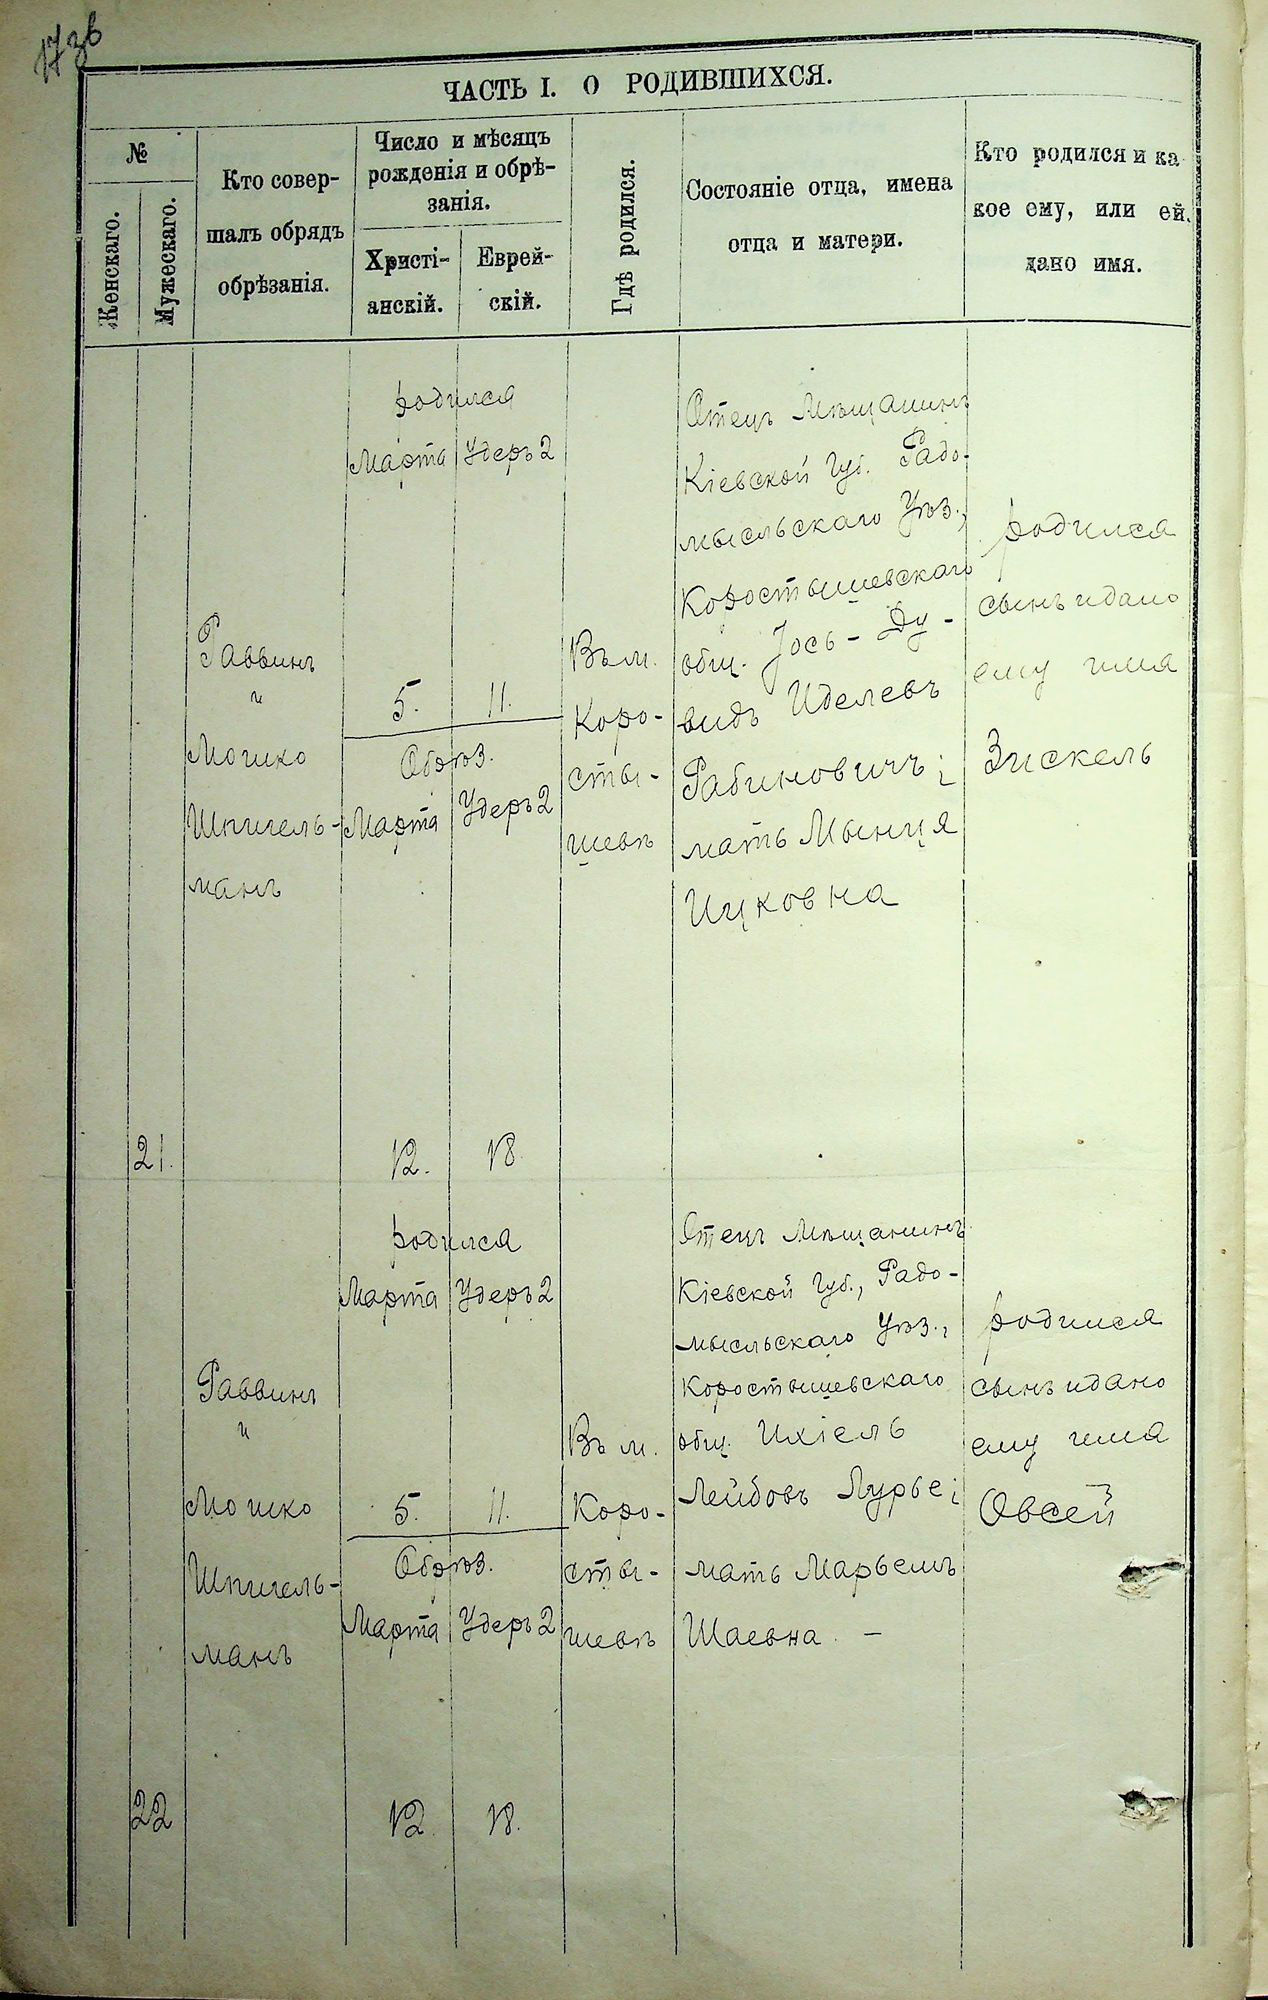 ЧАСТЬ I. О РОДИВШИХСЯ.
№
Женскаго.
Мужескаго.
Кто совер-
шалъ обрядъ
обрѣзанія.
Число и мѣсяцъ
рожденія и обрѣ-
занія.
Христі-
анскій.
Еврей-
скій.
Гдѣ родился.
Состояніе отца, имена
отца и матери.
Кто родился и ка
кое ему, или ей,
дано имя.
21.
Раввинъ
и
Мошко
Шпигель-
манъ
родился
Марта Удеръ 2
5. 11.
Обрѣз.
Марта Удеръ 2
12. 18.
Въ м.
Коро-
сты-
шевѣ
Отецъ Мѣщанинъ
Кіевской Губ. Радо-
мысльскаго Уѣз.,
Коростышевскаго
общ. Іось-Ду-
видъ Иделевъ
Рабиновичъ;
мать Мынця
Ицковна
родился
сынъ и дано
ему имя
Зискель
22
Раввинъ
и
Мошко
Шпигель-
манъ
родился
Марта Удеръ 2
5. 11.
Обрѣз.
Марта Удеръ 2
12. 18.
Въ м.
Коро-
сты-
шевѣ
Отецъ Мѣщанинъ
Кіевской Губ., Радо-
мысльскаго Уѣз.,
Коростышевскаго
общ. Ихіель
Лейбовъ Лурье;
мать Марьемъ
Шаевна. -
родился
сынъ и дано
ему имя
Овсей